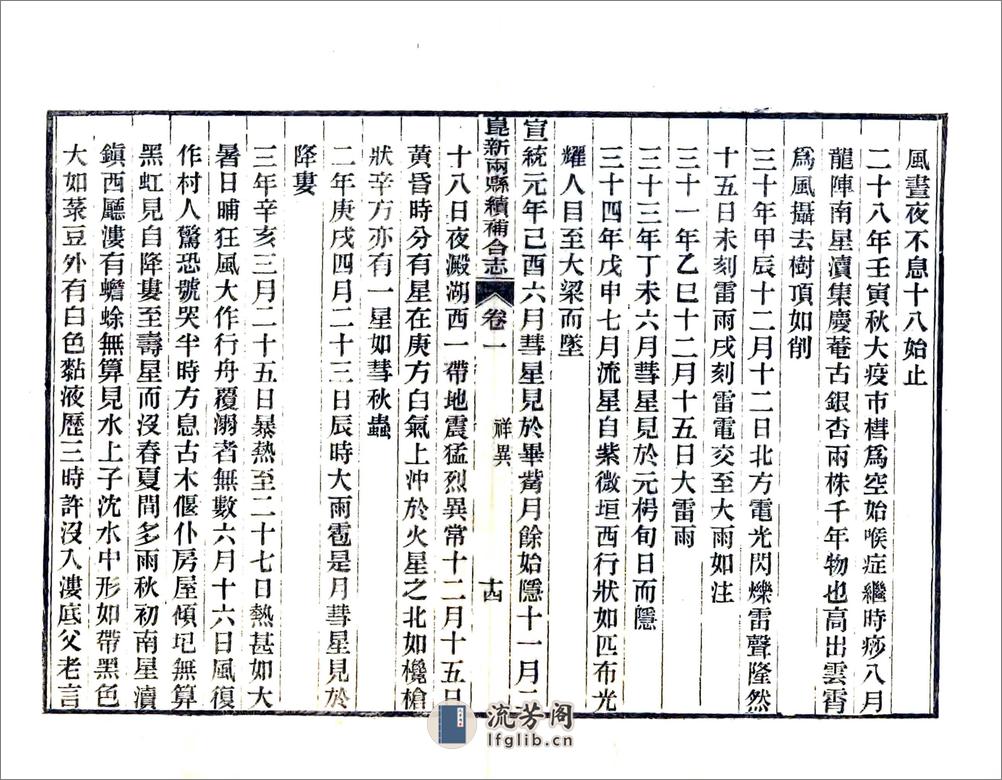 風晝夜不息十八始止
二十八年壬寅秋大疫市槥爲空始喉症繼時痧八月
龍陣南星瀆集慶菴古銀杏兩株千年物也高出雲霄
爲風攝去樹頂如削
三十年甲辰十二月十二日北方電光閃爍雷聲隆然
十五日未刻雷雨戌刻雷電交至大雨如注
三十一年乙巳十二月十五日大雷雨
三十三年丁未六月彗星見於元枵旬日而隱
三十四年戊申七月流星自紫微垣西行狀如匹布光
耀人目至大梁而墜
宣統元年己酉六月彗星見於畢觜月餘始隱十一月二
崑新兩縣續補合志
卷一
祥異
十四
十八日夜澱湖西一帶地震猛烈異常十二月十五日
黄昏時分有星在庚方白氣上沖於火星之北如欃槍
狀辛方亦有一星如彗秋蟲
二年庚戌四月二十三日辰時大雨雹是月彗星見於
降婁
三年辛亥三月二十五日暴熱至二十七日熱甚如大
暑日晡狂風大作行舟覆溺者無數六月十六日風復
作村人驚恐號哭半時方息古木偃仆房屋傾圮無算
黑虹見自降婁至壽星而沒春夏間多雨秋初南星瀆
鎮西廳漊有蟾蜍無算見水上子沈水中形如帶黑色
大如菉豆外有白色黏液歷三時許沒入漊底父老言
流芳阁
lfglib.cn